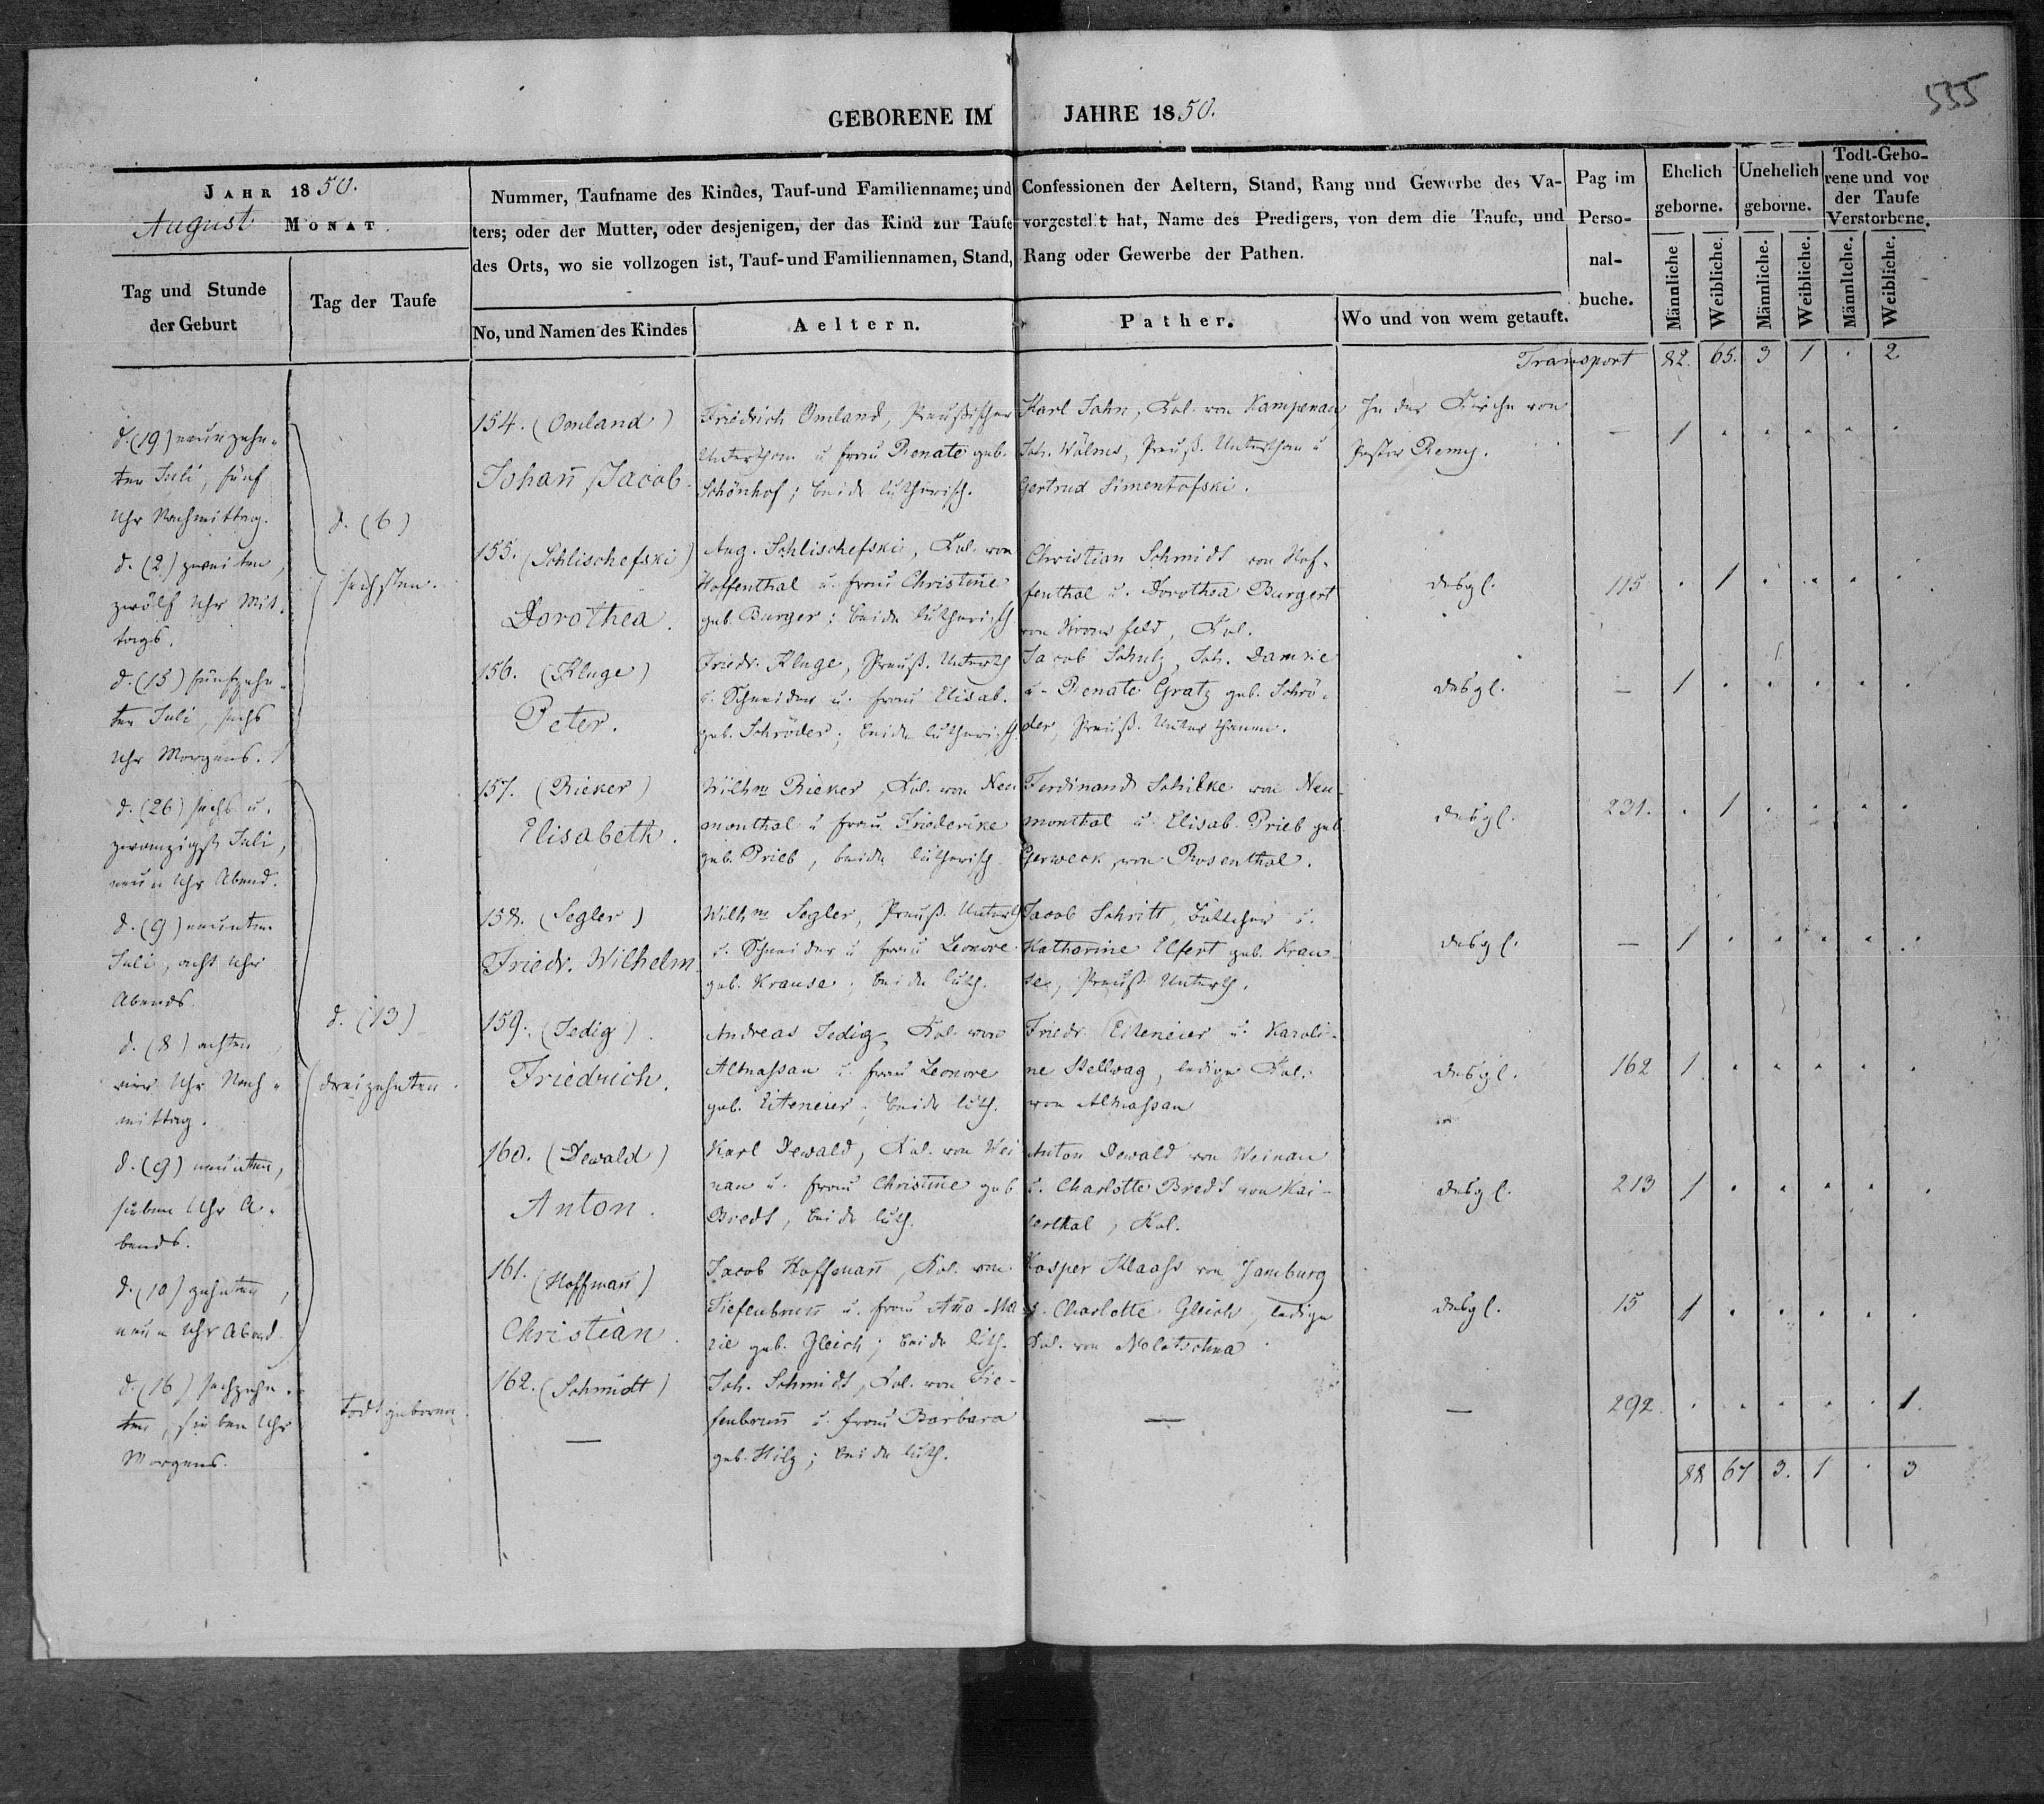 535
GEBORENE IM JAHRE 1850.
JAHR 1850.
August MONAT.
Tag und Stunde
der Geburt
Tag der Taufe
Nummer, Taufname des Kindes, Tauf-und Familienname; und Confessionen der Aeltern, Stand, Rang und Gewerbe des Va-
ters; oder der Mutter, oder desjenigen, der das Kind zur Taufe vorgestellt hat, Name des Predigers, von dem die Taufe, und
des Orts, wo sie vollzogen ist, Tauf-und Familiennamen, Stand, Rang oder Gewerbe der Pathen.
No, und Namen des Kindes
Aeltern.
Pather.
Wo und von wem getauft.
Pag im
Perso-
nal-
buche.
Ehelich
geborne.
Unehelich
geborne.
Todt-Gebo-
rene und vor
der Taufe
Verstorbene.
Männliche
Weibliche.
Männliche.
Weibliche.
Männliche.
Weibliche.
Transport 82. 65. 3 1 . 2
d. (19) neunzehn-
ten Juli, fünf
Uhr Nachmittag.
d. (6)
sechsten.
154. (Omland)
Johan̄ Jacob.
Friedrich Omland, Preußischer
Unterthan u. Frau Renate geb.
Schönhof; beide lutherisch.
Karl Jahn, Kol. von Kampenau
Joh. Wölms, Preuß. Unterthan u
Gertrud Simentofski.
In der Kirche von
Pastor Remy.
— 1 . . . . .
d. (2.) zweiten,
zwölf Uhr Mit-
tags.
155. (Schlischefski)
Dorothea.
Aug. Schlischefski, Kol. von
Hoffenthal u. Frau Christine
geb. Burger; beide lutherisch
Christian Schmidt von Hof-
fenthal u. Dorothea Burgert
von Kronsfeld, Kol.
desgl.
115 . 1 . . . .
d. (15) fünfzehn-
ten Juli, sechs
Uhr Morgens.
156. (Kluge)
Peter.
Friedr. Kluge, Preuß. Unterth
u. Schneider u. Frau Elisab.
geb. Schröder; beide lutherisch.
Jacob Schulz, Joh. Damrie
u. Renate Gratz geb. Schrö-
der, Preuß. Unterthanen.
desgl.
— 1 . . . . .
d. (26) sechs u.
zwanzigst Juli,
neun Uhr Abend.
d. (13)
dreizehnten.
157. (Rieker)
Elisabeth.
Wilhm Rieker, Kol. von Neu
monthal u Frau Friederike
geb. Prieb, beide lutherisch
Ferdinand Schilke von Neu-
monthal u. Elisab. Prieb geb.
Gerweck, von Rosenthal.
desgl.
231. . 1 . . . .
d. (9) neunten
Juli, acht Uhr
Abends.
158. (Segler)
Friedr. Wilhelm.
Wilhm Segler, Preuß. Unterth
u. Schneider u Frau Leonore
geb. Krause. beide luth.
Jacob Schritt, Böttcher u.
Katharine Elfert geb. Krau-
se, Preuß. Unterth.
desgl.
— 1 . . . . .
d. (8) achten,
vier Uhr Nach-
mittag.
159. (Jedig)
Friedrich.
Andreas Jedig, Kol. von
Altnassau u. Frau Leonore
geb. Eiteneier; beide luth.
Friedr. Eiteneier u. Karoli-
ne Stellwag, ledige Kol.
von Altnassau
desgl.
162 1 . . . . .
d. (9) neunten,
sieben Uhr A-
bends.
160. (Dewald)
Anton.
Karl Dewald, Kol. von Wei
nau u. Frau Christine geb
Bredt, beide luth.
Anton Dewald von Weinau
u. Charlotte Bredt von Kai-
serthal, Kol.
desgl.
213 1 . . . . .
d. (10) zehnten,
neun Uhr Abend.
161. (Hoffman̄)
Christian.
Jacob Hoffman̄, Kol. von
Tiefenbrun̄ u. Frau An̄a Ma
rie geb. Gleich; beide luth.
Kasper Klaass von Jamburg
u. Charlotte Gleich, ledige
Kol. von Molotschna
desgl.
15 1 . . . . .
d. (16) sechzehn-
ten, sieben Uhr
Morgens.
todtgeboren.
162. (Schmidt)
—
Joh. Schmidt, Kol. von Tie-
fenbrun̄ u. Frau Barbara
geb. Hilz; beide luth.
—
—
292. . . . . . 1.
88 67 3. 1 . 3